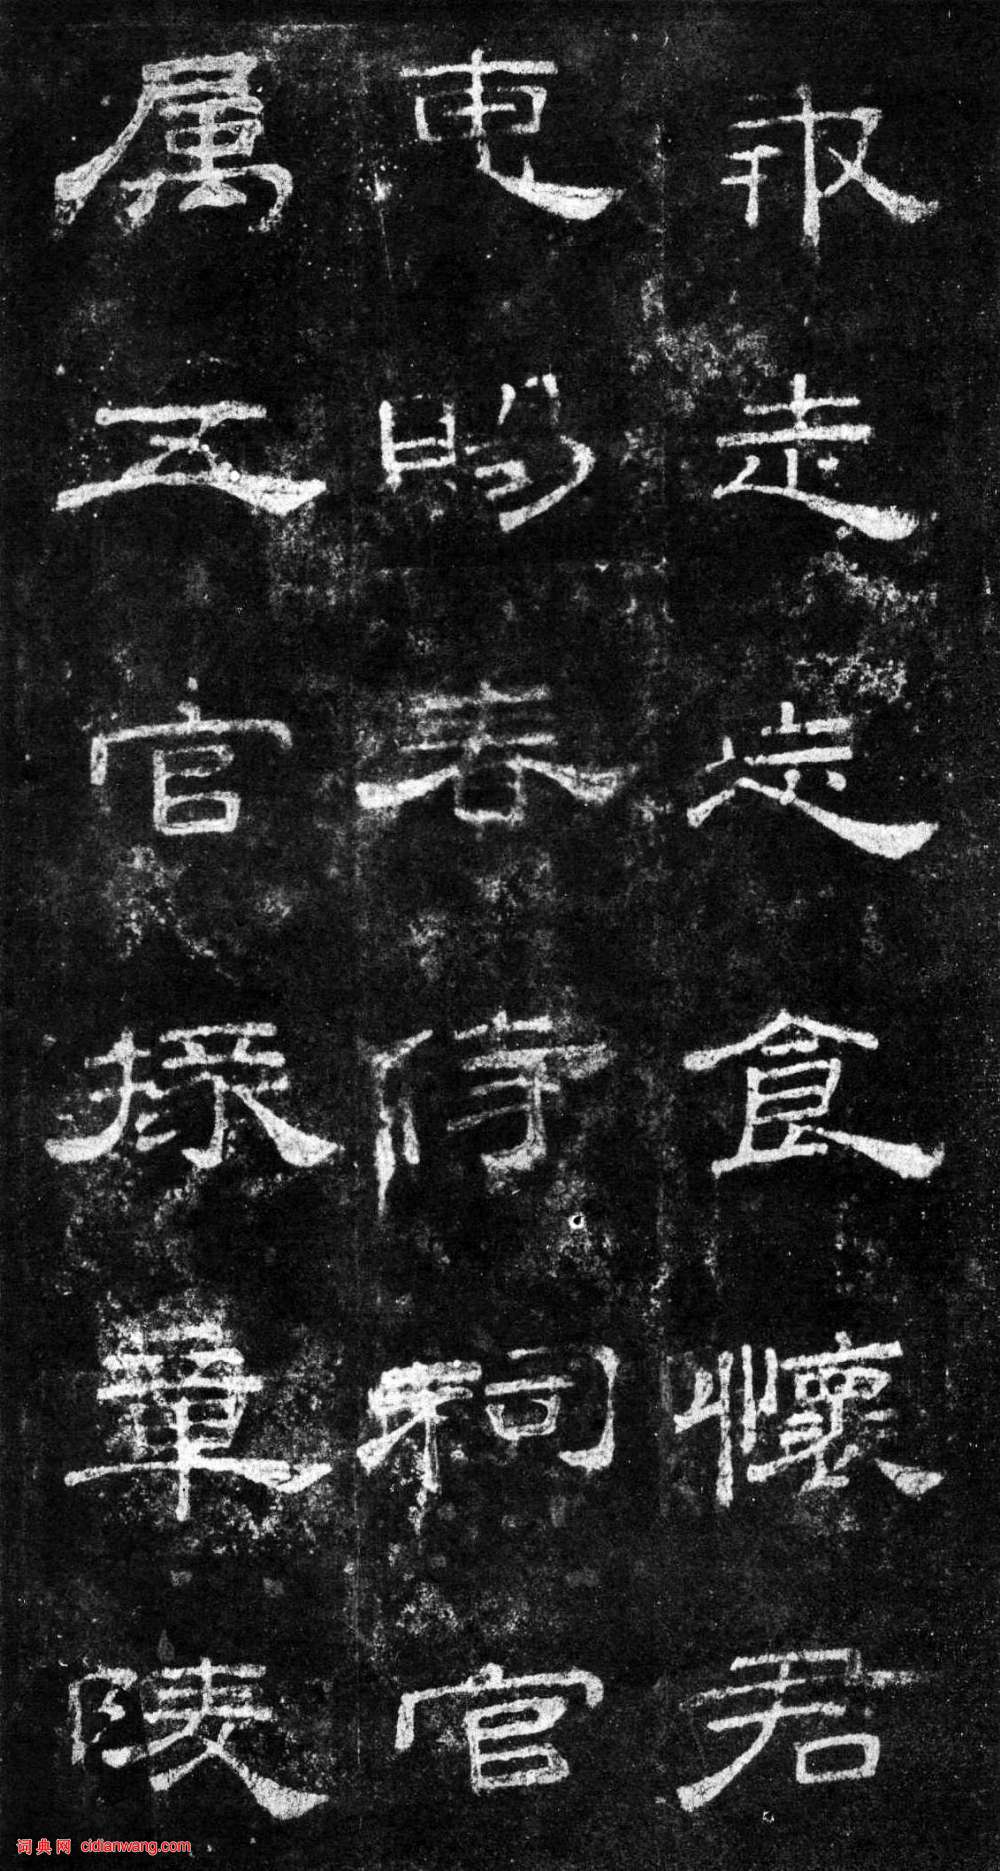 走忘食懷君
惠賜春侍祠官
属五官掾章陵
词典网 cidianwang.com